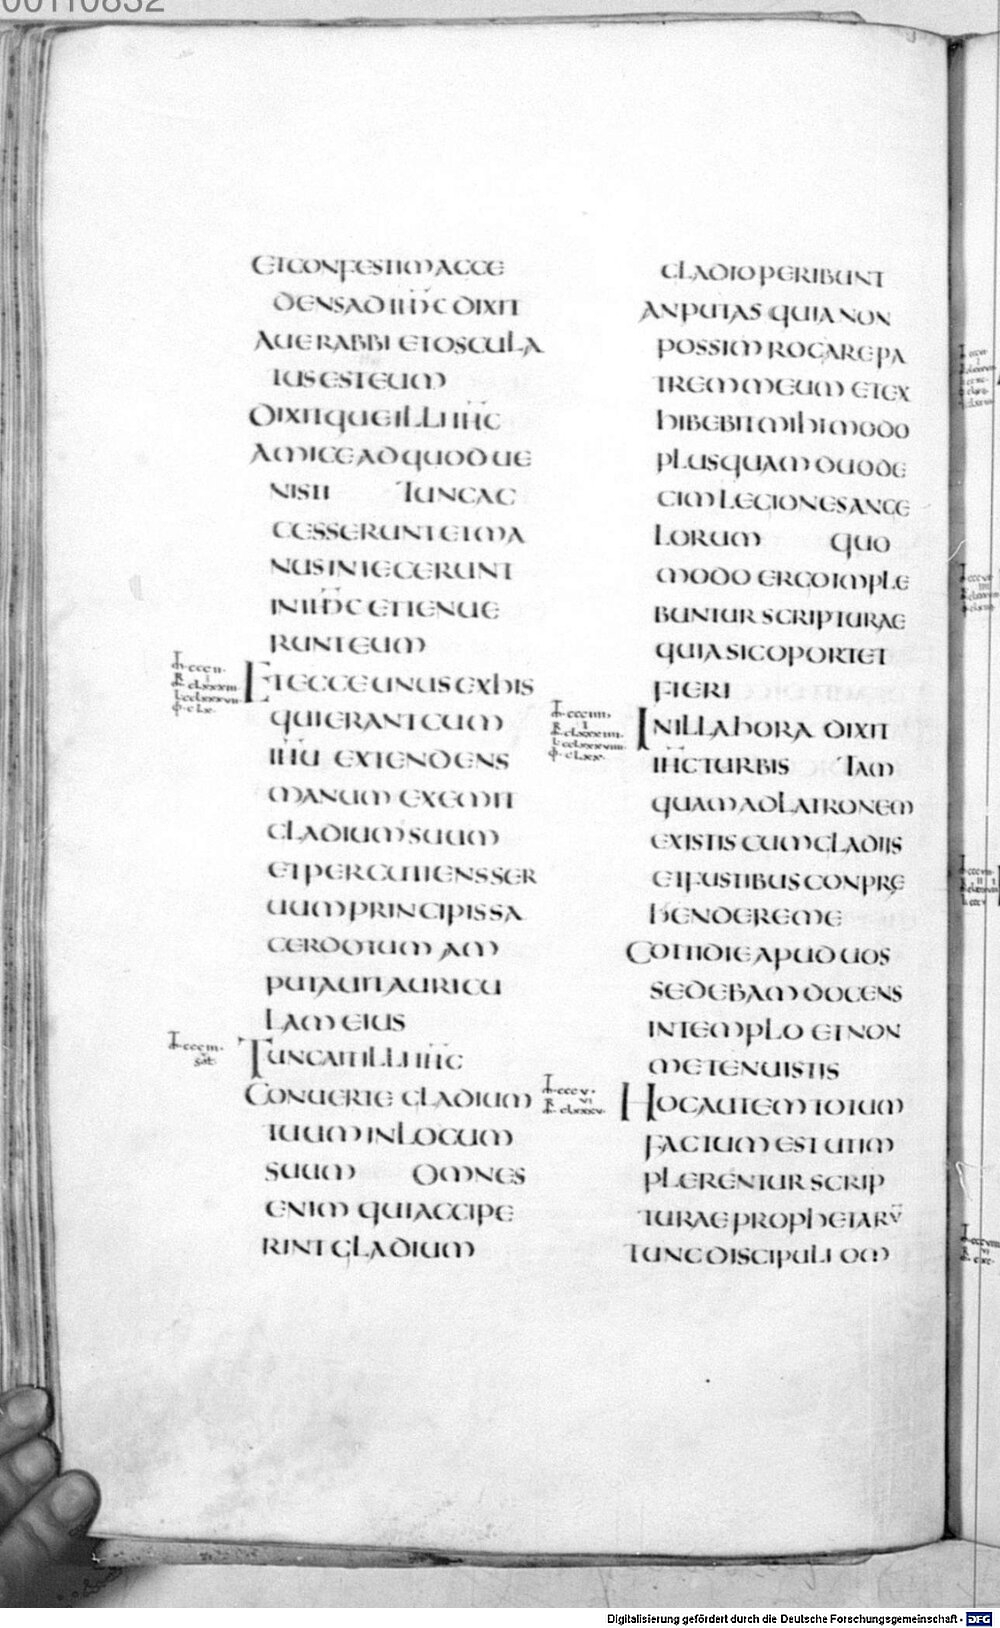 ETCONFESTIMACCE
DENSADIHC DIXIT
AUERABBI ETOSCULA
TUSESTEUM
DIXITQUEILLIIHC
AMICEADQUODUE
NISTI TUNCAC
CESSERUNTETMA
NUSINIECERUNT
INIHC ETTENUE
RUNTEUM
ETECCEUNUSEXHIS
QUIERANTCUM
IHU EXTENDENS
MANUM EXEMIT
GLADIUMSUUM
ETPERCUTIENSSER
UUMPRINCIPISSA
CERDOTUM AM
PUTAUITAURICU
LAMEIUS
TUNCAITILLIIHC
CONUERTE GLADIUM
TUUMINLOCUM
SUUM OMNES
ENIM QUIACCIPE
RINTGLADIUM
GLADIOPERIBUNT
ANPUTAS QUIANON
POSSIM ROGAREPA
TREMMEUM ETEX
HIBEBITMIHIMODO
PLUSQUAMDUODE
CIMLEGIONESANGE
LORUM QUO
MODO ERGOIMPLE
BUNTUR SCRIPTURAE
QUIASICOPORTET
FIERI
INILLAHORA DIXIT
IHCTURBIS TAM
QUAMADLATRONEM
EXISTIS CUMGLADIIS
ETFUSTIBUSCONPRE
HENDEREME
COTTIDIEAPUDUOS
SEDEBAMDOCENS
INTEMPLO ETNON
METENUISTIS
HOCAUTEMTOTUM
FACTUMEST UTIM
PLERENTUR SCRIP
TURAEPROPHETARV̅
TUNCDISCIPULI OM
Digitalisierung gefördert durch die Deutsche Forschungsgemeinschaft - DFG